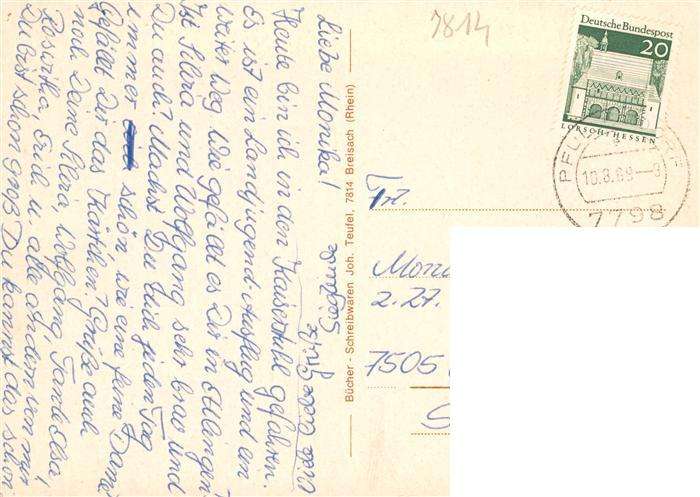 7814
Deutsche Bundespost
20
LORSCH/HESSEN
10.8.69-8
7798
Liebe Monika!
Heute bin ich in den Kaiserstuhl gefahren.
Es ist ein Landjugend-Ausflug und ein
weiter Weg. Wie gefällt es Dir in Ettlingen?
Ist Silvia und Wolfgang sehr brav und
Du auch? Machst Du Dich jeden Tag
immer schön, wie eine feine Dame?
Gefällt Dir das Kärtchen? Grüße auch
noch Deine Silvia, Wolfgang, Tante Elsa,
Roswitha, Erich u. alle andern von mir
Du bist schon groß Du kannst das schon
Viele liebe Grüße
Sigrune
Bücher - Schreibwaren Joh. Teufel, 7814 Breisach (Rhein)
Frl.
Moni
z. Zt.
7505
S